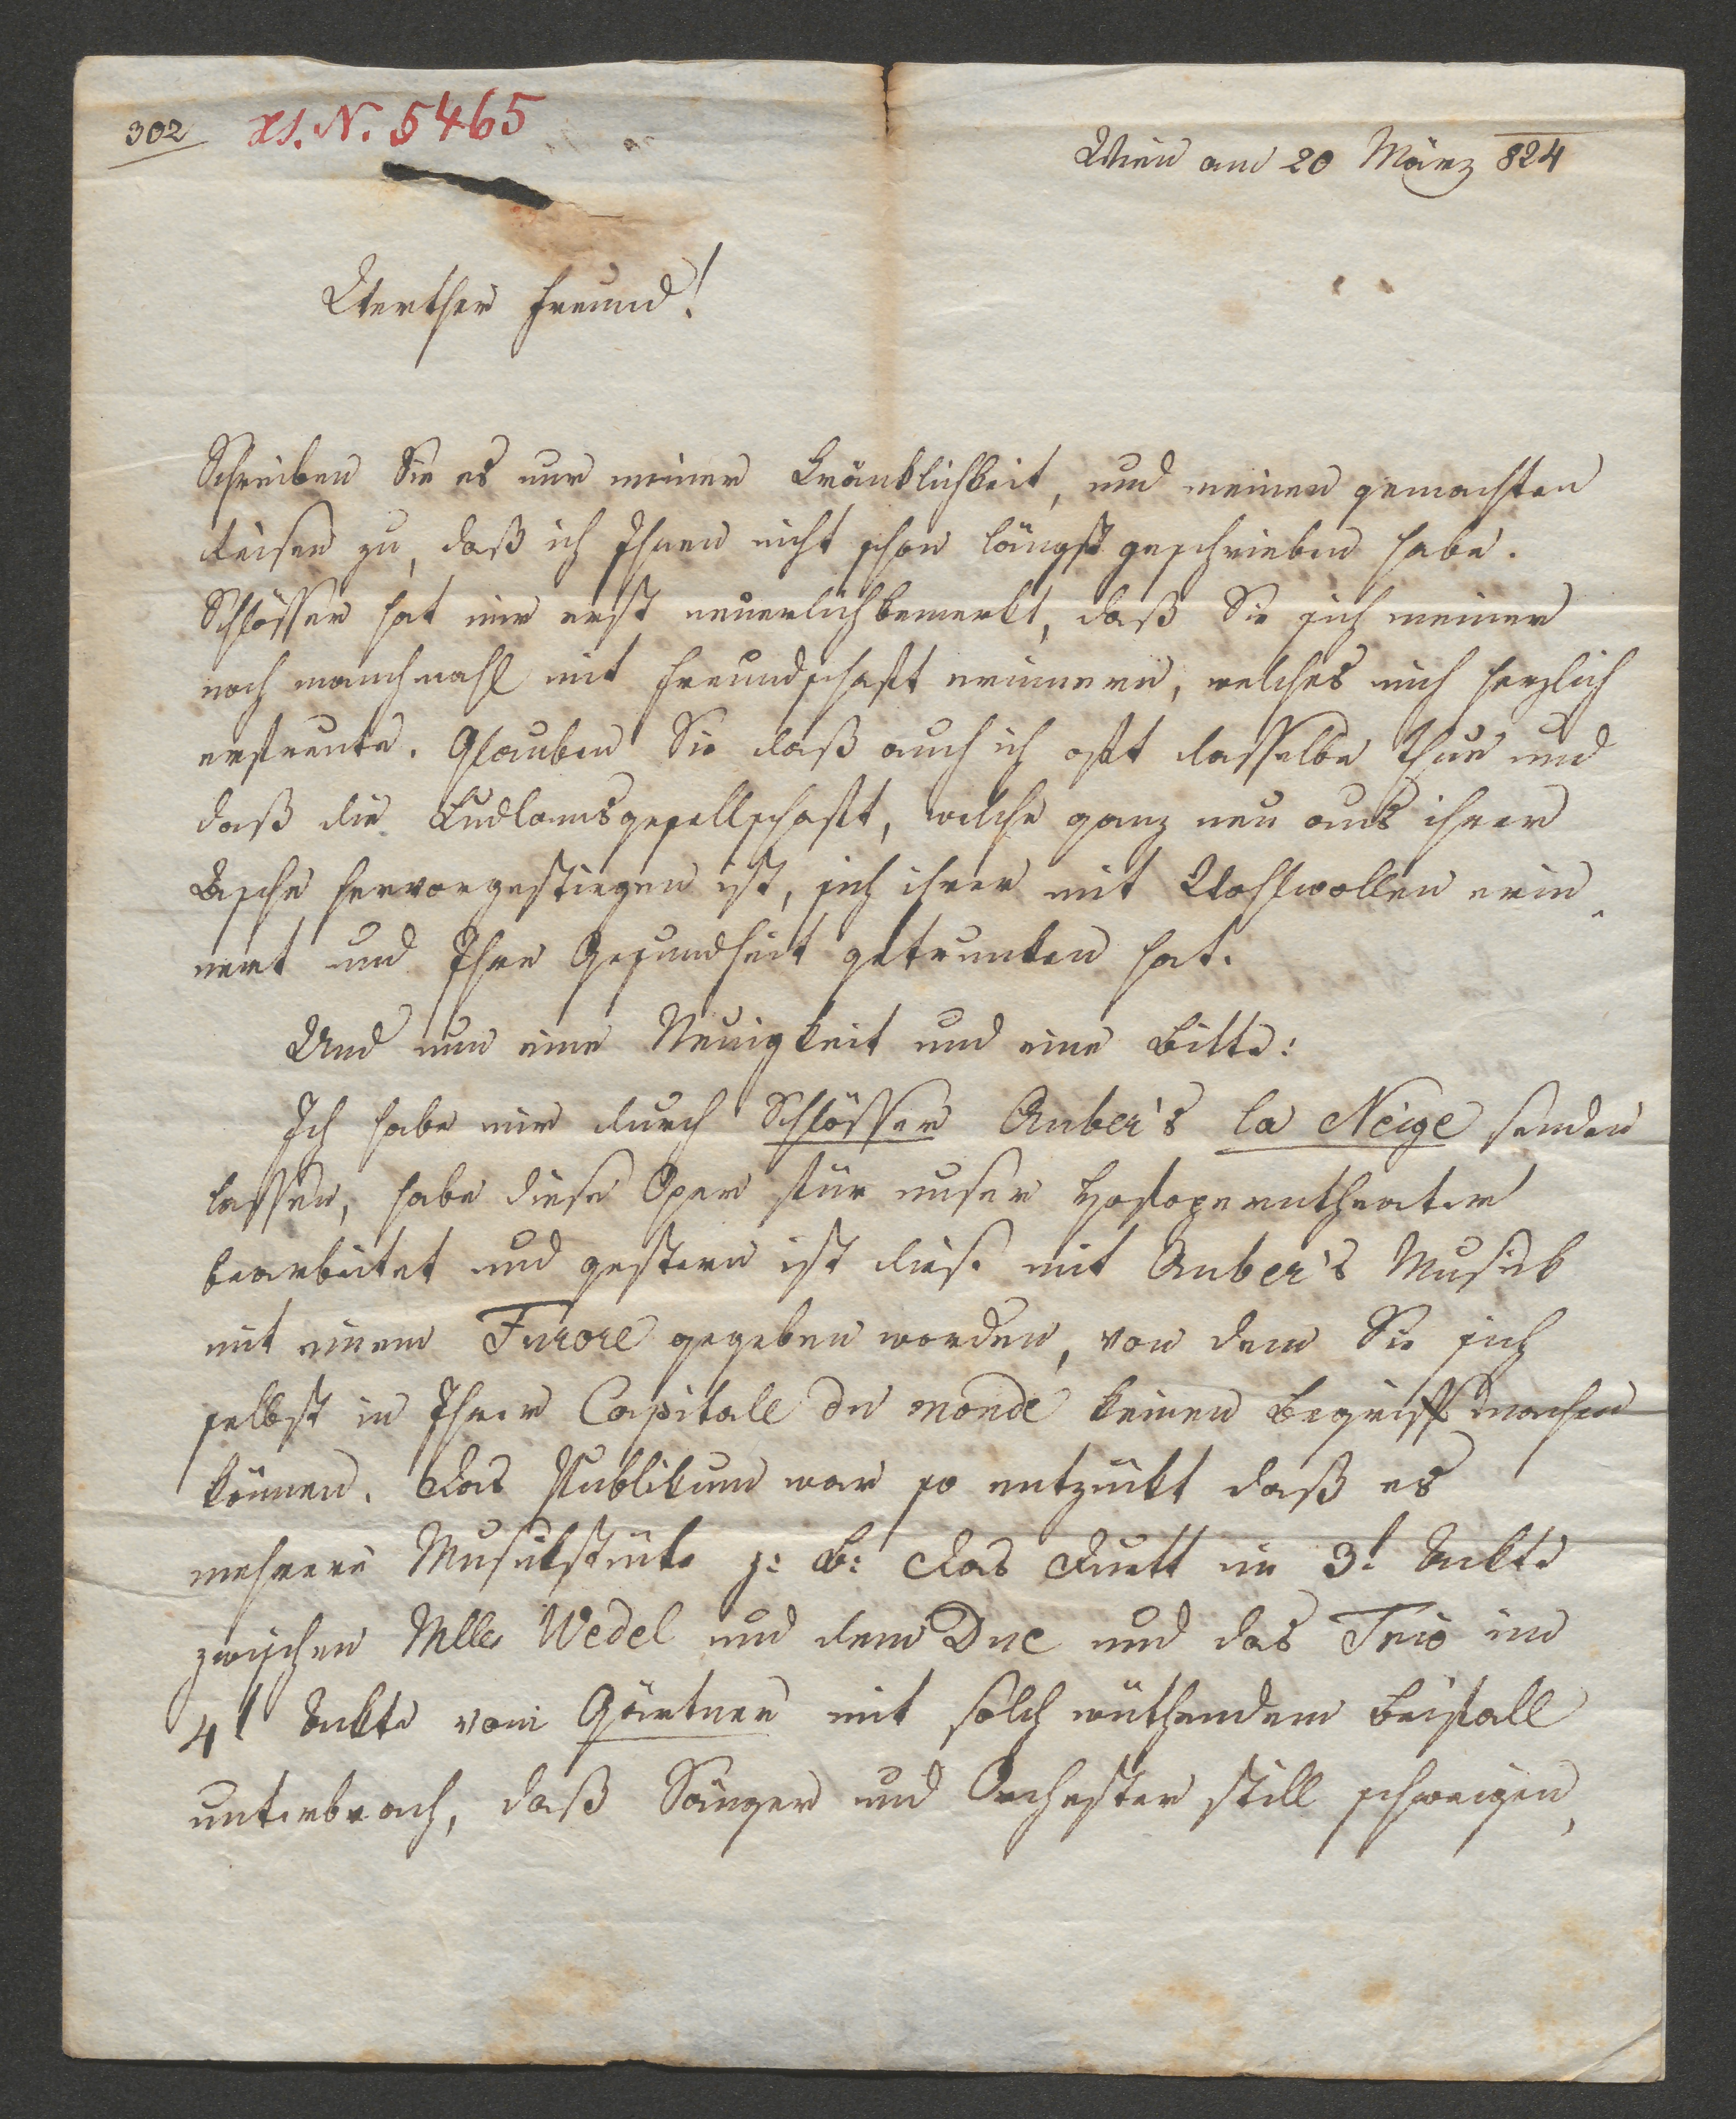 302 xs. N. 5465
Wien am 20 März 824
Werther Freund!
Schreiben Sie es nur meiner Kränklichkeit, und meinen gemachten
Reisen zu, daß ich Ihnen nicht schon längst geschrieben habe.
Schlösser hat mir erst neuerlich bemerkt, daß Sie sich meiner
noch manchmahl mit Freundschaft erinnern, welches mich herzlich
erfreute. Glauben Sie daß auch ich oft dasselbe thue und
daß die Ludlamsgesellschaft, welche ganz neu aus ihrer
Asche hervorgestiegen ist, sich ihrer mit Wohlwollen erin-
nert und Ihre Gesundheit getrunken hat.
Und nun eine Neuigkeit und eine Bitte:
Ich habe mir durch Schlösser Auber's la Neige senden
lassen, habe diese Oper für unser Hofoperntheater
bearbeitet und gestern ist diese mit Auber's Musick
mit einem Furore gegeben worden, von dem Sie sich
selbst in Ihrer Capitale du monde keinen Begriff machen
können. Das Publikum war so entzückt daß es
mehrere Musickstücke z: B: das Duett im 3t Ackte
zwischen Mlle Wedel und dem Duc und das Trio im
4t Ackte vom Gärtner mit solch wüthendem Beifall
unterbrach, daß Sänger und Orchester still schweigen,